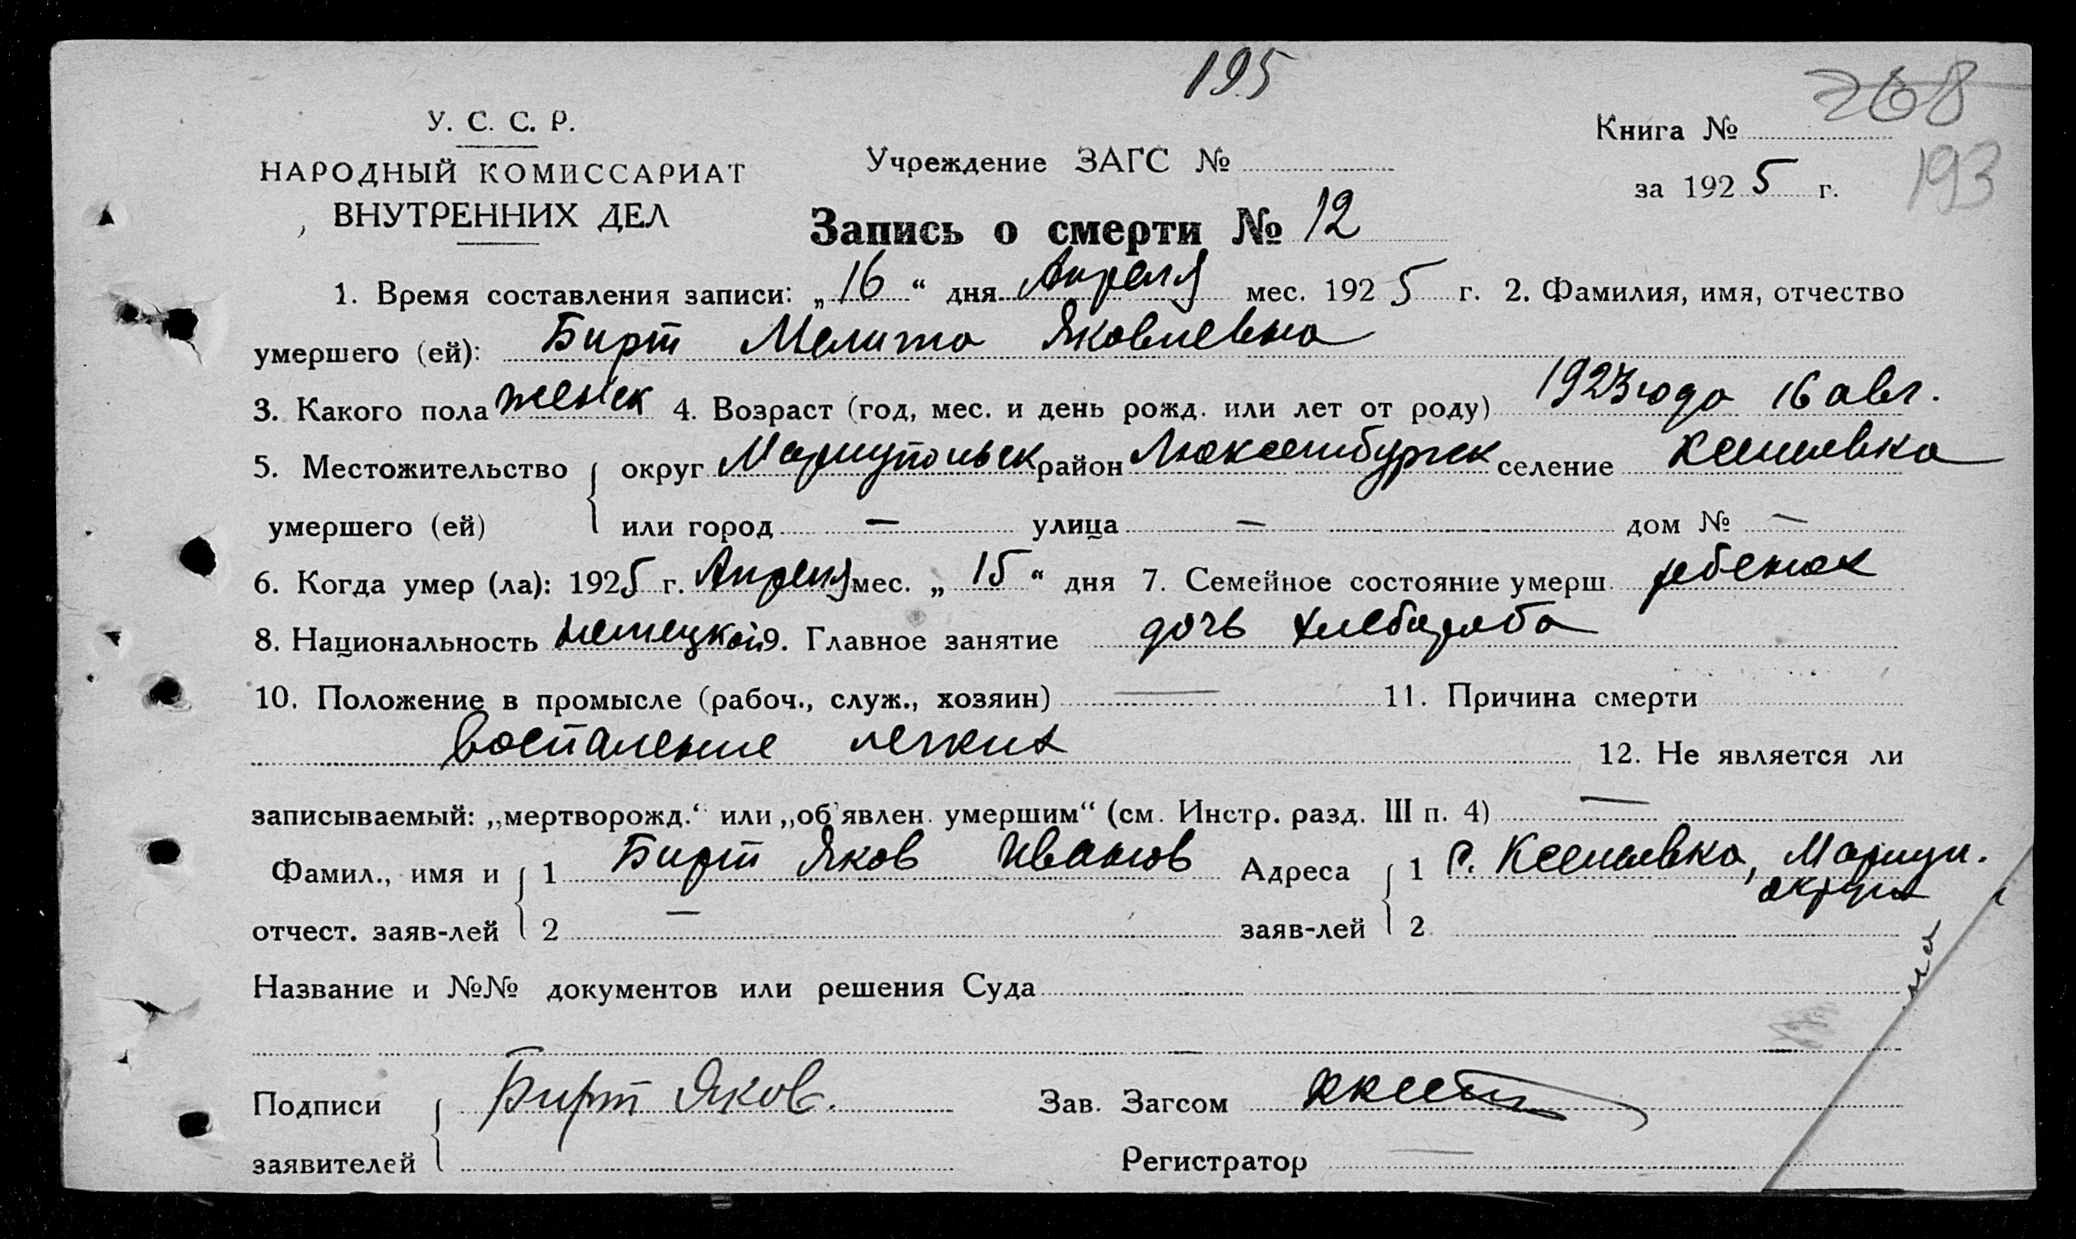 195
У. С. С. Р.
НАРОДНЫЙ КОМИССАРИАТ
ВНУТРЕННИХ ДЕЛ
Учреждение ЗАГС №
Книга № 268
193
за 1925 г.
Запись о смерти № 12
1. Время составления записи: „16“ дня Апреля мес. 1925 г. 2. Фамилия, имя, отчество
умершего (ей): Бирт Мелита Яковлевна
3. Какого пола женск 4. Возраст (год, мес. и день рожд. или лет от роду) 1923 года 16 авг.
5. Местожительство { округ Мариупольск район Люксембургск селение Ксеньевка
умершего (ей) или город — улица — дом № —
6. Когда умер (ла): 1925 г. Апреля мес. „15“ дня 7. Семейное состояние умерш. ребенок
8. Национальность немецкой 9. Главное занятие дочь хлебороба
10. Положение в промысле (рабоч., служ., хозяин) — 11. Причина смерти
воспаление легких 12. Не является ли
записываемый: „мертворожд.“ или „об'явлен. умершим“ (см. Инстр. разд. III п. 4) —
Фамил., имя и { 1 Бирт Яков Иванов Адреса { 1 с. Ксеньевка, Мариуп. округа
отчест. заяв-лей 2 — заяв-лей 2
Название и №№ документов или решения Суда
Подписи { Бирт Яков. Зав. Загсом
заявителей Регистратор —